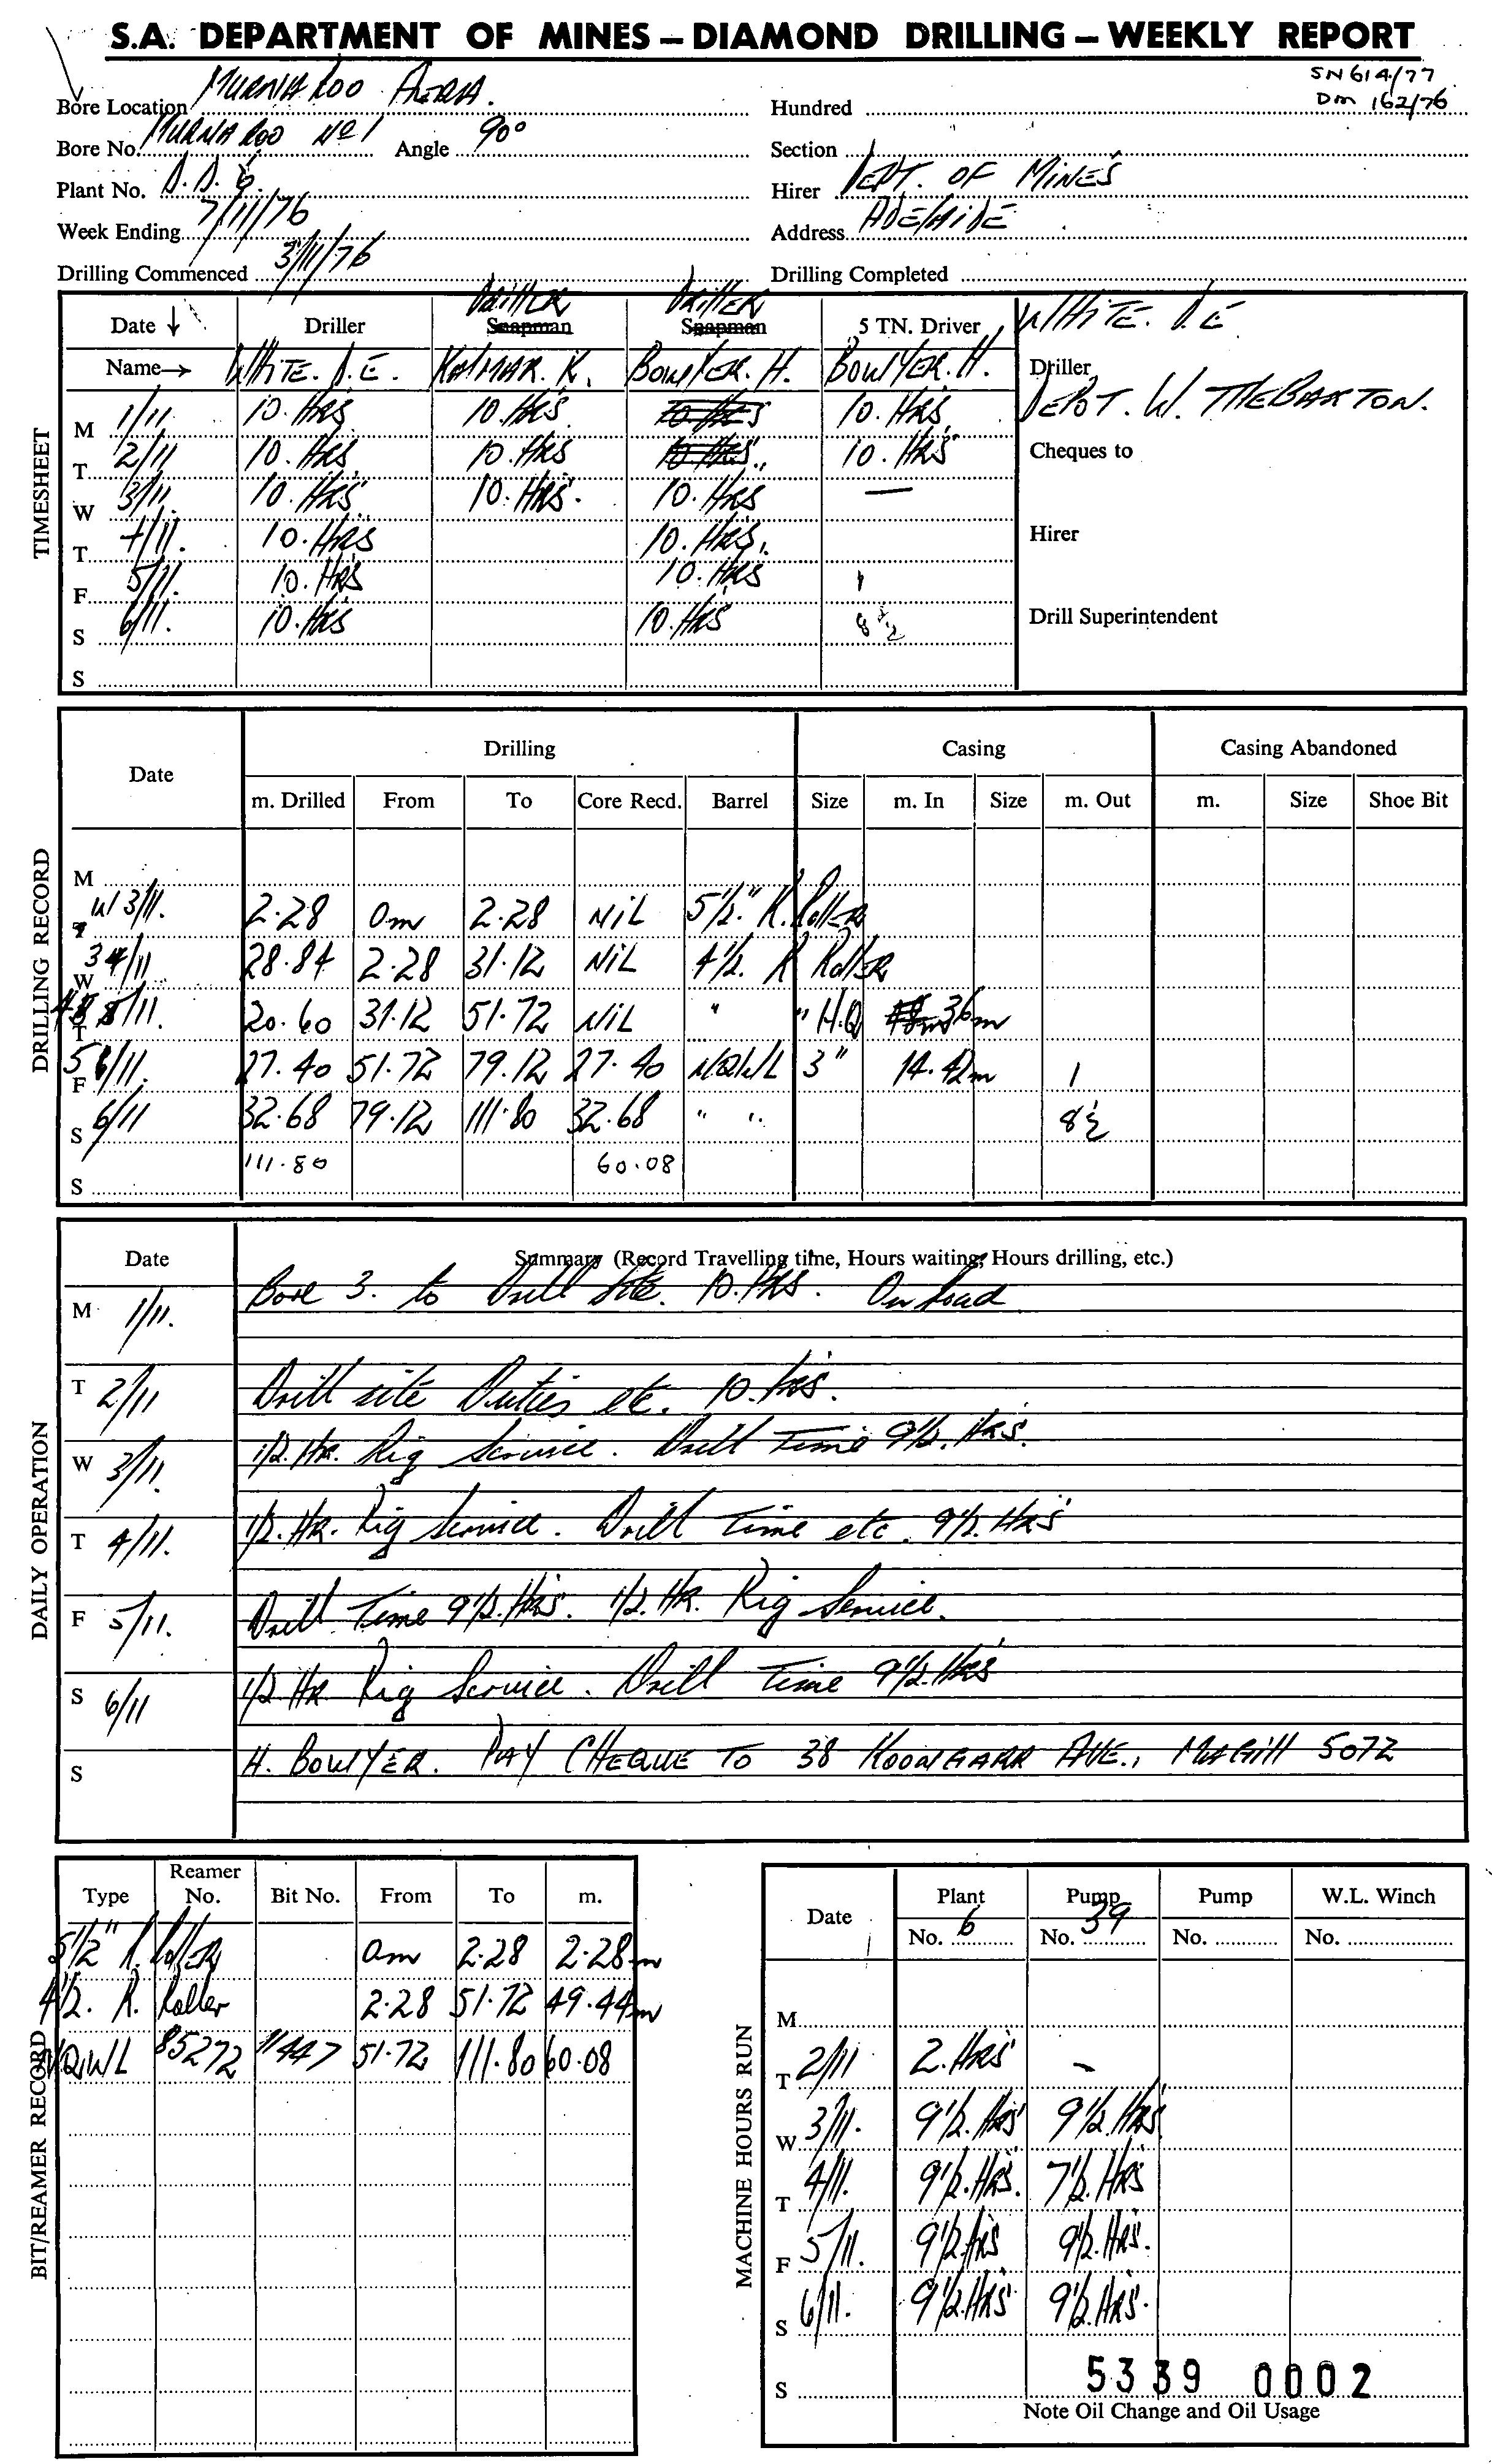 S.A. DEPARTMENT OF MINES – DIAMOND DRILLING – WEEKLY REPORT
SN 614/77
DM 162/76
Bore Location MURNAROO AREA.
Hundred
Bore No. MURNAROO No 1 Angle 90°
Section
Plant No. D.D. 6.
Hirer DEPT. OF MINES
Week Ending 7/11/76
Address ADELAIDE
Drilling Commenced 3/11/76
Drilling Completed
TIMESHEET
DRILLER DRILLER
Date ↓ Driller Snapman Snapman 5 TN. Driver WHITE. D.E
Name→ WHITE. D.E. KALMAR. K. BOWYER. H. BOWYER. H. Driller
M 1/11. 10. HRS 10. HRS 10 HRS 10. HRS DEPOT. W. THEBARTON.
T 2/11 10. HRS 10. HRS 10 HRS. 10. HRS Cheques to
W 3/11. 10. HRS 10. HRS. 10. HRS —
T 4/11. 10. HRS 10. HRS. Hirer
F 5/11. 10. HRS 10. HRS 1
S 6/11. 10. HRS 10. HRS 8½ Drill Superintendent
S
DRILLING RECORD
Date Drilling Casing Casing Abandoned
m. Drilled From To Core Recd. Barrel Size m. In Size m. Out m. Size Shoe Bit
M
W 3/11. 2.28 0m 2.28 NIL 5½" R. ROLLER
T
3 4/11 28.84 2.28 31.12 NIL 4½. R ROLLER
W
5/11. 20.60 31.12 51.72 NIL " " H.Q 36m
T
5 6/11. 27.40 51.72 79.12 27.40 NQWL 3" 14.42m 1
F
S 6/11 32.68 79.12 111.80 32.68 " " 8½
111.80 60.08
S
DAILY OPERATION
Date Summary (Record Travelling time, Hours waiting, Hours drilling, etc.)
M 1/11. Bore 3. to Drill Site. 10. Hrs. On Road
T 2/11 Drill site Duties etc. 10. Hrs.
W 3/11. 1/2. Hr. Rig Service. Drill Time 9½. Hrs.
T 4/11. 1/2. HR. Rig Service. Drill Time etc. 9½ HRS
F 5/11. Drill Time 9½. Hrs. 1/2. HR. Rig Service.
S 6/11 1/2 HR Rig Service. Drill Time 9½. HRS
S H. BOWYER. PAY CHEQUE TO 38 KOONGARR AVE., MAGILL 5072
BIT/REAMER RECORD
Type Reamer No. Bit No. From To m.
5½" R. ROLLER 0m 2.28 2.28m
4½. R. Roller 2.28 51.72 49.44m
NQWL 85272 11447 51.72 111.80 60.08
MACHINE HOURS RUN
Date Plant Pump Pump W.L. Winch
No. 6 No. 39 No. No.
M
T 2/11 2. HRS –
W 3/11. 9½. HRS 9½. HRS
T 4/11. 9½. HRS. 7½. HRS
F 5/11. 9½ HRS 9½. HRS.
S 6/11. 9½. HRS 9½. HRS.
S
5339 0002
Note Oil Change and Oil Usage